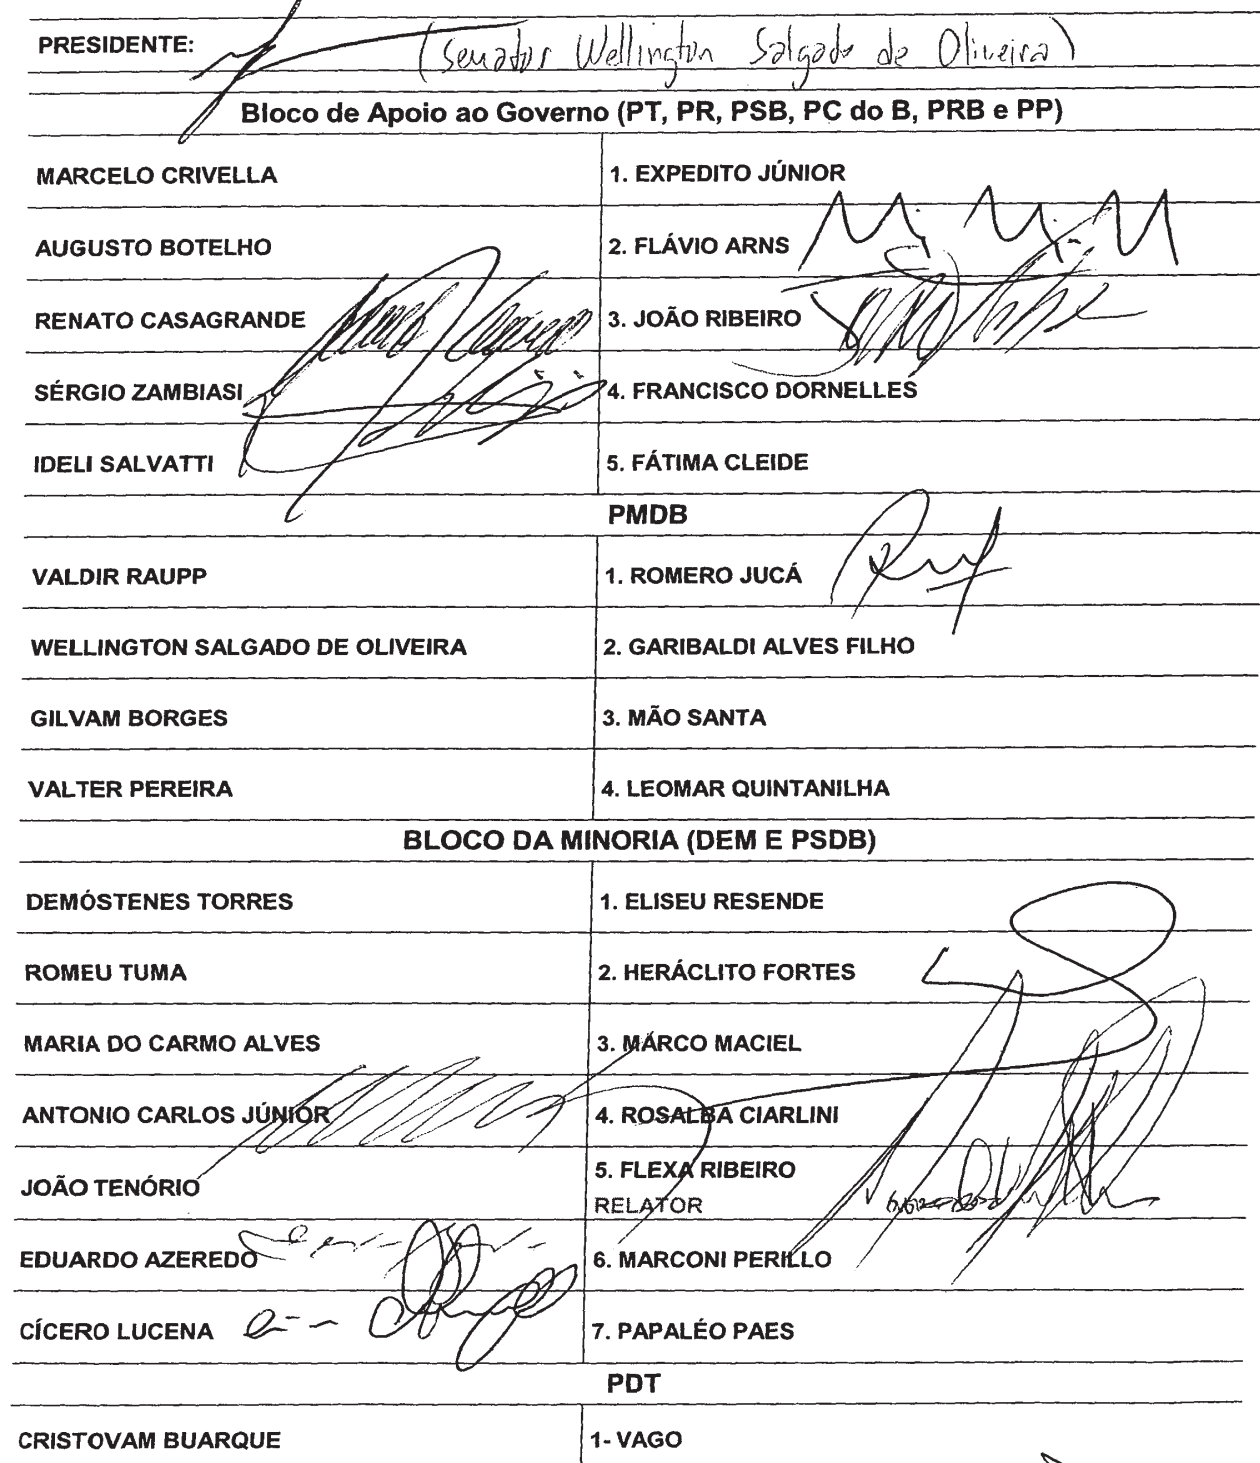 PRESIDENTE: (Senador Wellington Salgado de Oliveira)
Bloco de Apoio ao Governo (PT, PR, PSB, PC do B, PRB e PP)
MARCELO CRIVELLA 1. EXPEDITO JÚNIOR
AUGUSTO BOTELHO 2. FLÁVIO ARNS
RENATO CASAGRANDE 3. JOÃO RIBEIRO
SÉRGIO ZAMBIASI 4. FRANCISCO DORNELLES
IDELI SALVATTI 5. FÁTIMA CLEIDE
PMDB
VALDIR RAUPP 1. ROMERO JUCÁ
WELLINGTON SALGADO DE OLIVEIRA 2. GARIBALDI ALVES FILHO
GILVAM BORGES 3. MÃO SANTA
VALTER PEREIRA 4. LEOMAR QUINTANILHA
BLOCO DA MINORIA (DEM E PSDB)
DEMÓSTENES TORRES 1. ELISEU RESENDE
ROMEU TUMA 2. HERÁCLITO FORTES
MARIA DO CARMO ALVES 3. MARCO MACIEL
ANTONIO CARLOS JÚNIOR 4. ROSALBA CIARLINI
JOÃO TENÓRIO 5. FLEXA RIBEIRO
RELATOR
EDUARDO AZEREDO 6. MARCONI PERILLO
CÍCERO LUCENA 7. PAPALÉO PAES
PDT
CRISTOVAM BUARQUE 1- VAGO